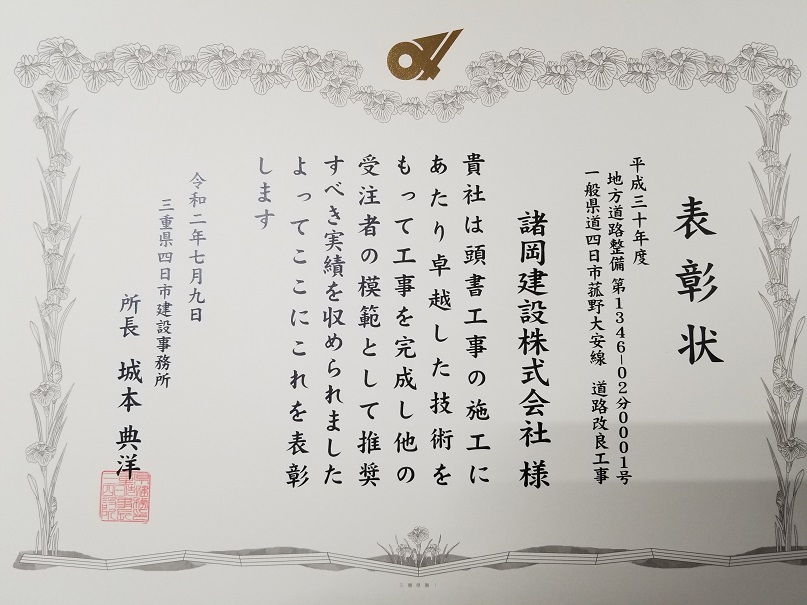 表彰状
平成三十年度
地方道路整備 第1346-02分0001号
一般県道四日市菰野大安線 道路改良工事
諸岡建設株式会社 様
貴社は頭書工事の施工に
あたり卓越した技術を
もって工事を完成し他の
受注者の模範として推奨
すべき実績を収められました
よってここにこれを表彰
します
令和二年七月九日
三重県四日市建設事務所
所長 城本 典洋